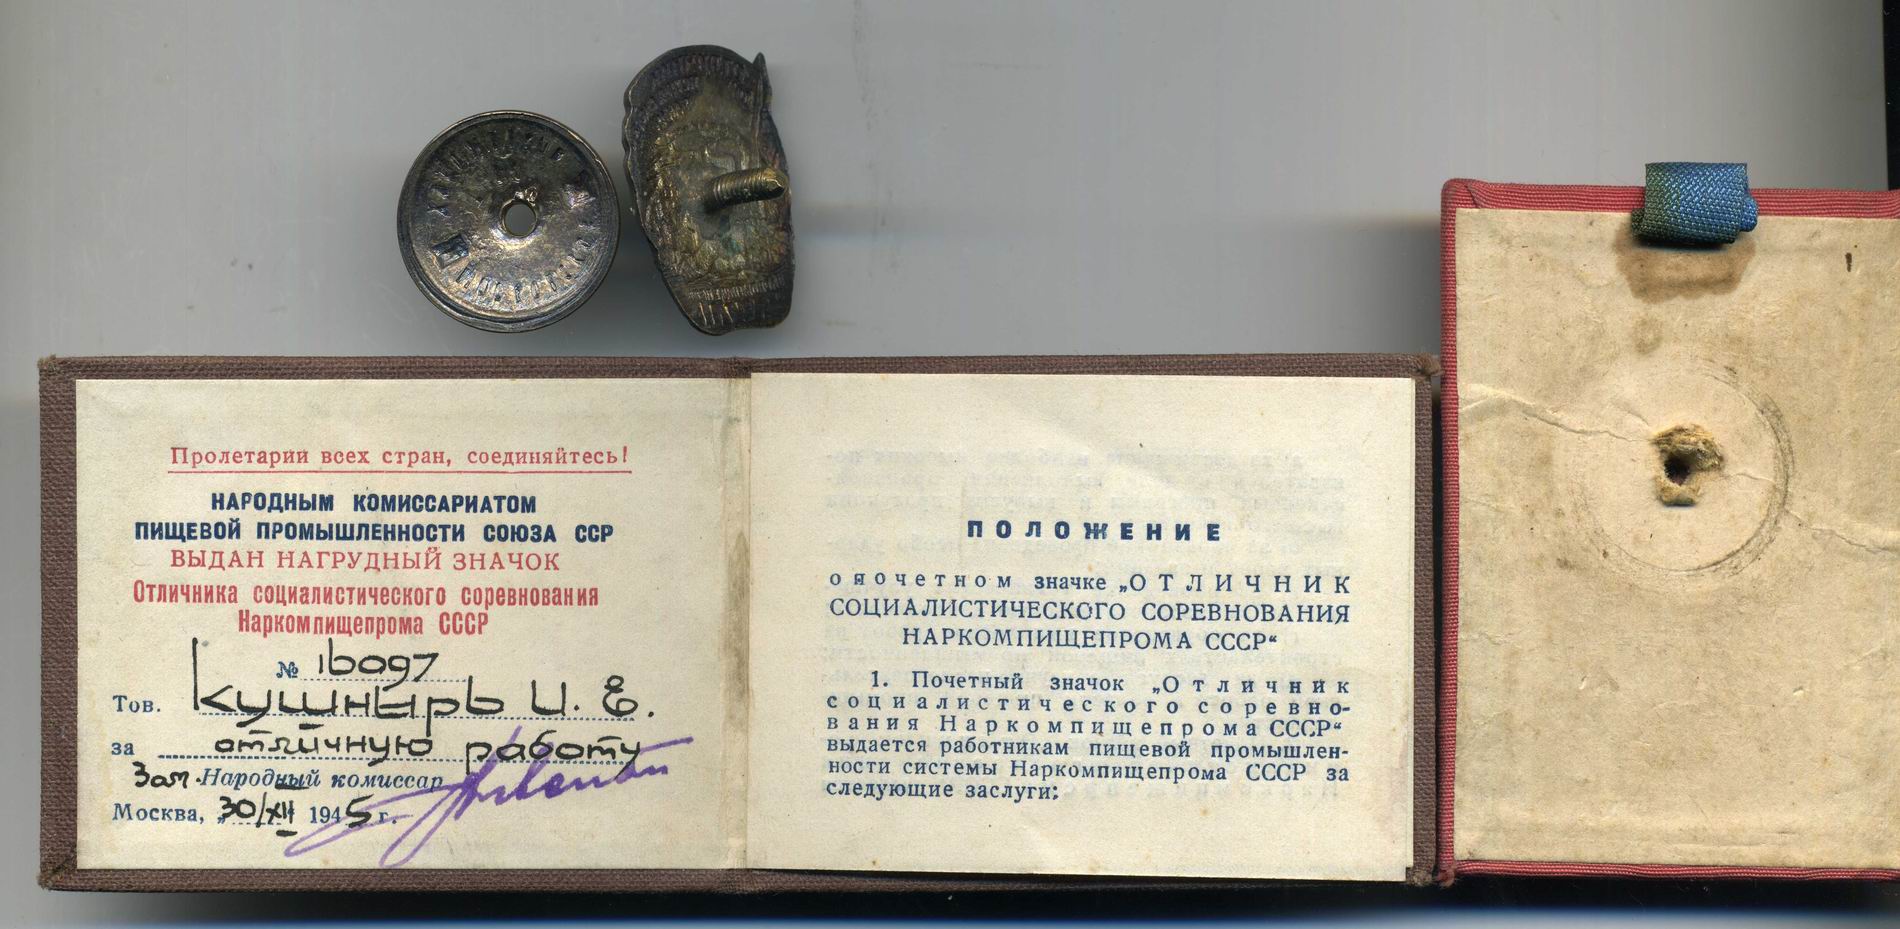 Пролетарии всех стран, соединяйтесь!
НАРОДНЫМ КОМИССАРИАТОМ
ПИЩЕВОЙ ПРОМЫШЛЕННОСТИ СОЮЗА ССР
ВЫДАН НАГРУДНЫЙ ЗНАЧОК
Отличника социалистического соревнования
Наркомпищепрома СССР
№ 16097
Тов. Кушнырь И. Е.
за отличную работу
Зам. Народный комиссар
Москва, „30/XII 1945 г.
ПОЛОЖЕНИЕ
о почетном значке „ОТЛИЧНИК
СОЦИАЛИСТИЧЕСКОГО СОРЕВНОВАНИЯ
НАРКОМПИЩЕПРОМА СССР“
1. Почетный значок „Отличник
социалистического соревно-
вания Наркомпищепрома СССР“
выдается работникам пищевой промышлен-
ности системы Наркомпищепрома СССР за
следующие заслуги: